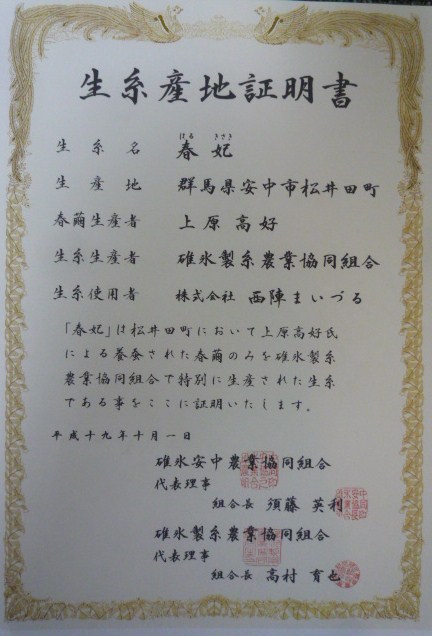 生糸産地証明書
はる きさき
生糸名 春妃
生産地 群馬県安中市松井田町
春繭生産者 上原高好
生糸生産者 碓氷製糸農業協同組合
生糸使用者 株式会社 西陣まいづる
「春妃」は松井田町において上原高好氏
による養蚕された春繭のみを碓氷製糸
農業協同組合で特別に生産された生糸
である事をここに証明いたします。
平成十九年十月一日
碓氷安中農業協同組合
代表理事
組合長 須藤 英利
碓氷製糸農業協同組合
代表理事
組合長 高村 育也